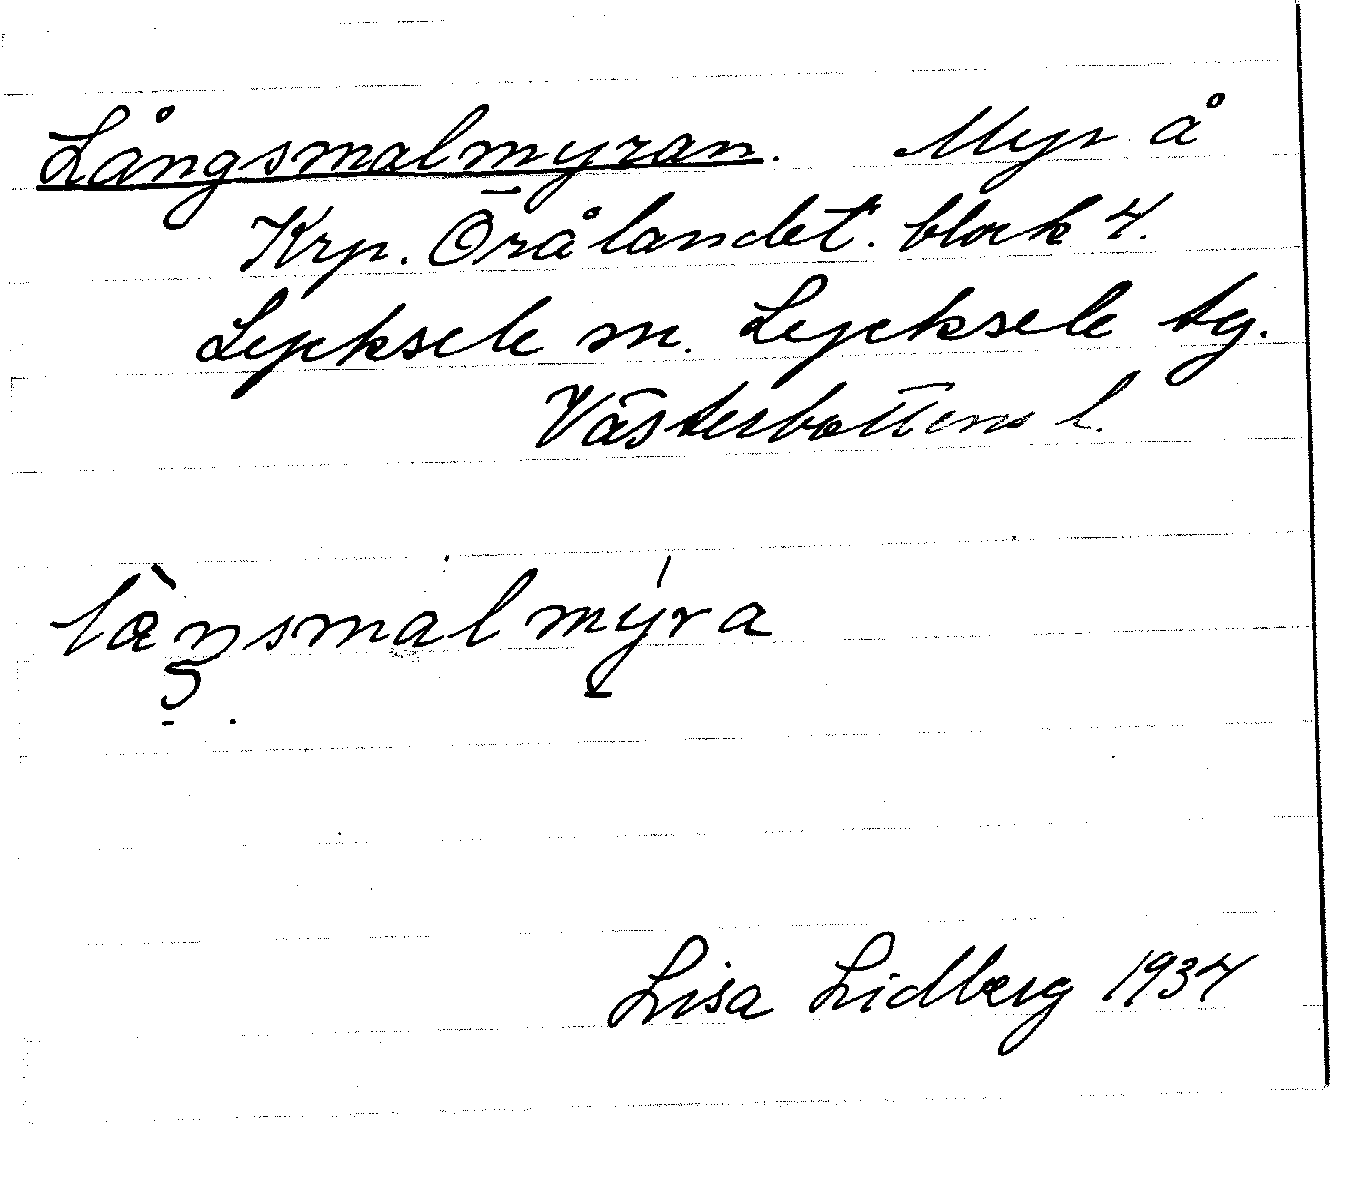 Långsmalmyran. Myr å
Krp. Örålandet. block 4.
Lycksele sn. Lycksele tg.
Västerbottens l.
lằŋsmalmýra
Lisa Lidberg 1934